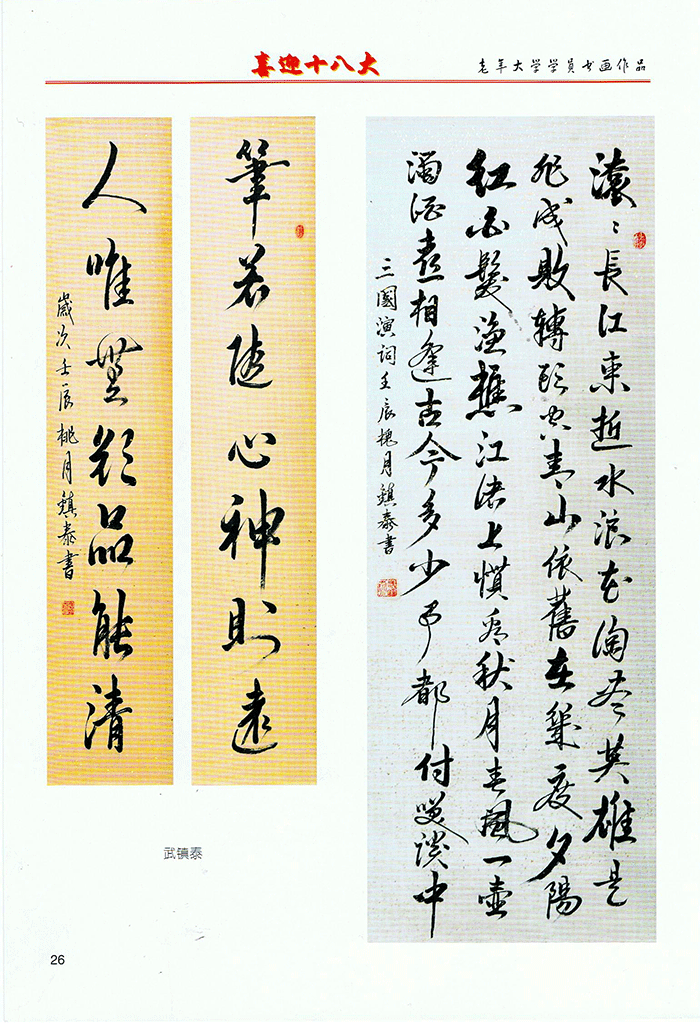 喜迎十八大
老年大学学员书画作品
滚〻長江東逝水浪花淘尽英雄是
非成敗轉頭空青山依舊在幾度夕陽
红白髮渔樵江渚上慣看秋月春風一壺
濁酒喜相逢古今多少事都付笑談中
三國演词壬辰槐月鎮泰書
筆若随心神則遠
人唯無欲品能清
歲次壬辰桃月鎮泰書
武镇泰
26